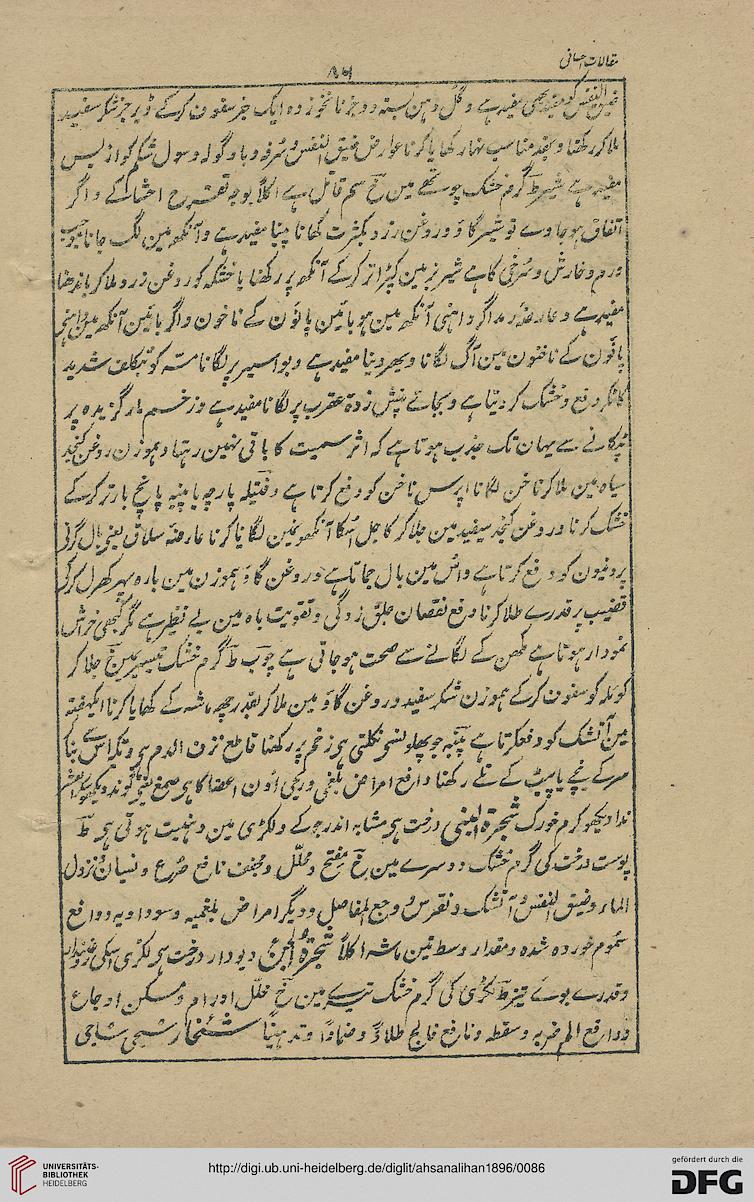 مقالات احسانی
۸۴
ضیق النفس کو مفید ہے و گل دہن بستہ دو جز نانخوزدہ ایک جز سفوف کرکے ڈیڑہ جز شکر سفید
ملا کر رکھنا و بقدر مناسب نہار کھایا کرنا عوارض ضیق النفس و سرفہ و با و گولہ و سول شکم کو از بس
مفید ہے بشرط گرم خشک چوتھے مین خ سم قاتل ہے اکلاً بوجہ تقرح احشا کے و اگر
اتفاق ہو جاوے تو شیر گاؤ و روغن زرد بکثرت کھانا پینا مفید ہے و آنکھ مین لگ جانا موجب
ورم و خارش و سرخی کا ہے شیر بز مین کپڑا تر کرکے آنکھ پر رکھنا یا خشکہ کو روغن زرد ملا کر باندھنا
مفید ہے و عارضہ رمد اگر داہنی آنکھ مین ہو بائین پاؤن کے ناخون و اگر بائین آنکھ مین داہنے
پاؤن کے ناخون مین آگ لگانا و بھر دینا مفید ہے و بواسیر پر لگانا مسہ کو بتکلف شدید
کاٹکر دفع و خشک کر دیتا ہے و بجائے نیش زدہ عقرب پر لگانا مفید ہے و زخم مار گزیدہ پر
ٹپکانے سے یہان تک جذب ہوتا ہے کہ اثر سمیت کا باقی نہین رہتا و ہموزن روغن کنجد
سیاہ مین ملا کر ناخن لگانا برص ناخن کو دفع کرتا ہے و فتیلہ پارچہ یا پنبہ پانچ بار تر کرکے
خشک کرنا و روغن کنجد سفید مین جلا کر کاجل اسکا آنکھونمین لگایا کرنا عارضہ سلاق یعنی بال گرنی
پروٹیون کو دفع کرتا ہے و اس مین بال جماتا ہے و روغن گاؤ ہموزن مین بارہ پہر کھرل کرکے
قضیب پر قدرے طلا کرنا دفع نقصان جلق زدگی و تقویت باہ مین بے نظیر ہے مگر کبھی خراش
نمودار ہوتا ہے مکھن کے لگانے سے صحت ہو جاتی ہے چوب ط گرم خشک تیسرے مین خ جلا کر
کوئلہ کو سفوف کرکے ہموزن شکر سفید و روغن گاؤ مین ملا کر بقدر چھ ماشہ کے کھایا کرنا ایک ہفتہ
مین آتشک کو دفع کرتا ہے پنبہ جو پھلونسے نکلتی ہی زخم پر رکھنا قاطع نزف الدم ہی و تکیہ اس سے بنا کر
سر کے نیچے یا پیٹ کے تلے رکھنا دافع امراض بلغمی و ریحی اون اعضا کا ہی صمغ یعنی گوند دیکھو سکر العشر
ندا دیکھو کرم خورک شجرۃ البنی درخت ہی مشابہ اندر جو کے و لکڑی مین دہنیت ہوتی ہی ط
پوست درخت کی گرم خشک دوسرے مین خ مفتح و محلل و مجفف نافع صرع و نسیان و نزول
الماء و ضیق النفس و آتشک و نقرس و وجع المفاصل و دیگر امراض بلغمیہ و سوداویہ و دافع
سموم خوردہ شدہ و مقدار وسط تین ماشہ اکلاً شجرۃ الجن دیودار درخت ہی لکڑی اسکی روغندار
و قدرے بوئے تیز ط لکڑی کی گرم خشک تیسرے مین خ محلل اورام و مسکن اوجاع
و دافع الم ضربہ و سقطہ و نافع فالج طلاءً و ضماداً و تدہیناً شخار شجی ساجی
UNIVERSITÄTS-
BIBLIOTHEK
HEIDELBERG
http://digi.ub.uni-heidelberg.de/diglit/ahsanalihan1896/0086
gefördert durch die
DFG